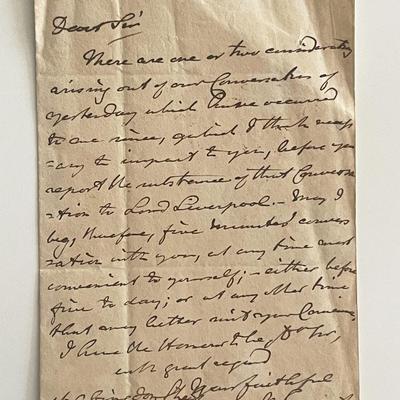 Dear Sir
There are one or two considerations
arising out of our Conversation of
yesterday which have occurred
to me since, which I think necess
=ary to impart to you, before you
report the substance of that Conversa
=tion to Lord Liverpool. – May I
beg, therefore, five minutes' convers
=ation with you, at any time most
convenient to yourself; – either before
five to day; or at any other time
that may better suit your Convenience,
I have the Honor to be, D Sir,
with great regard
Your faithful